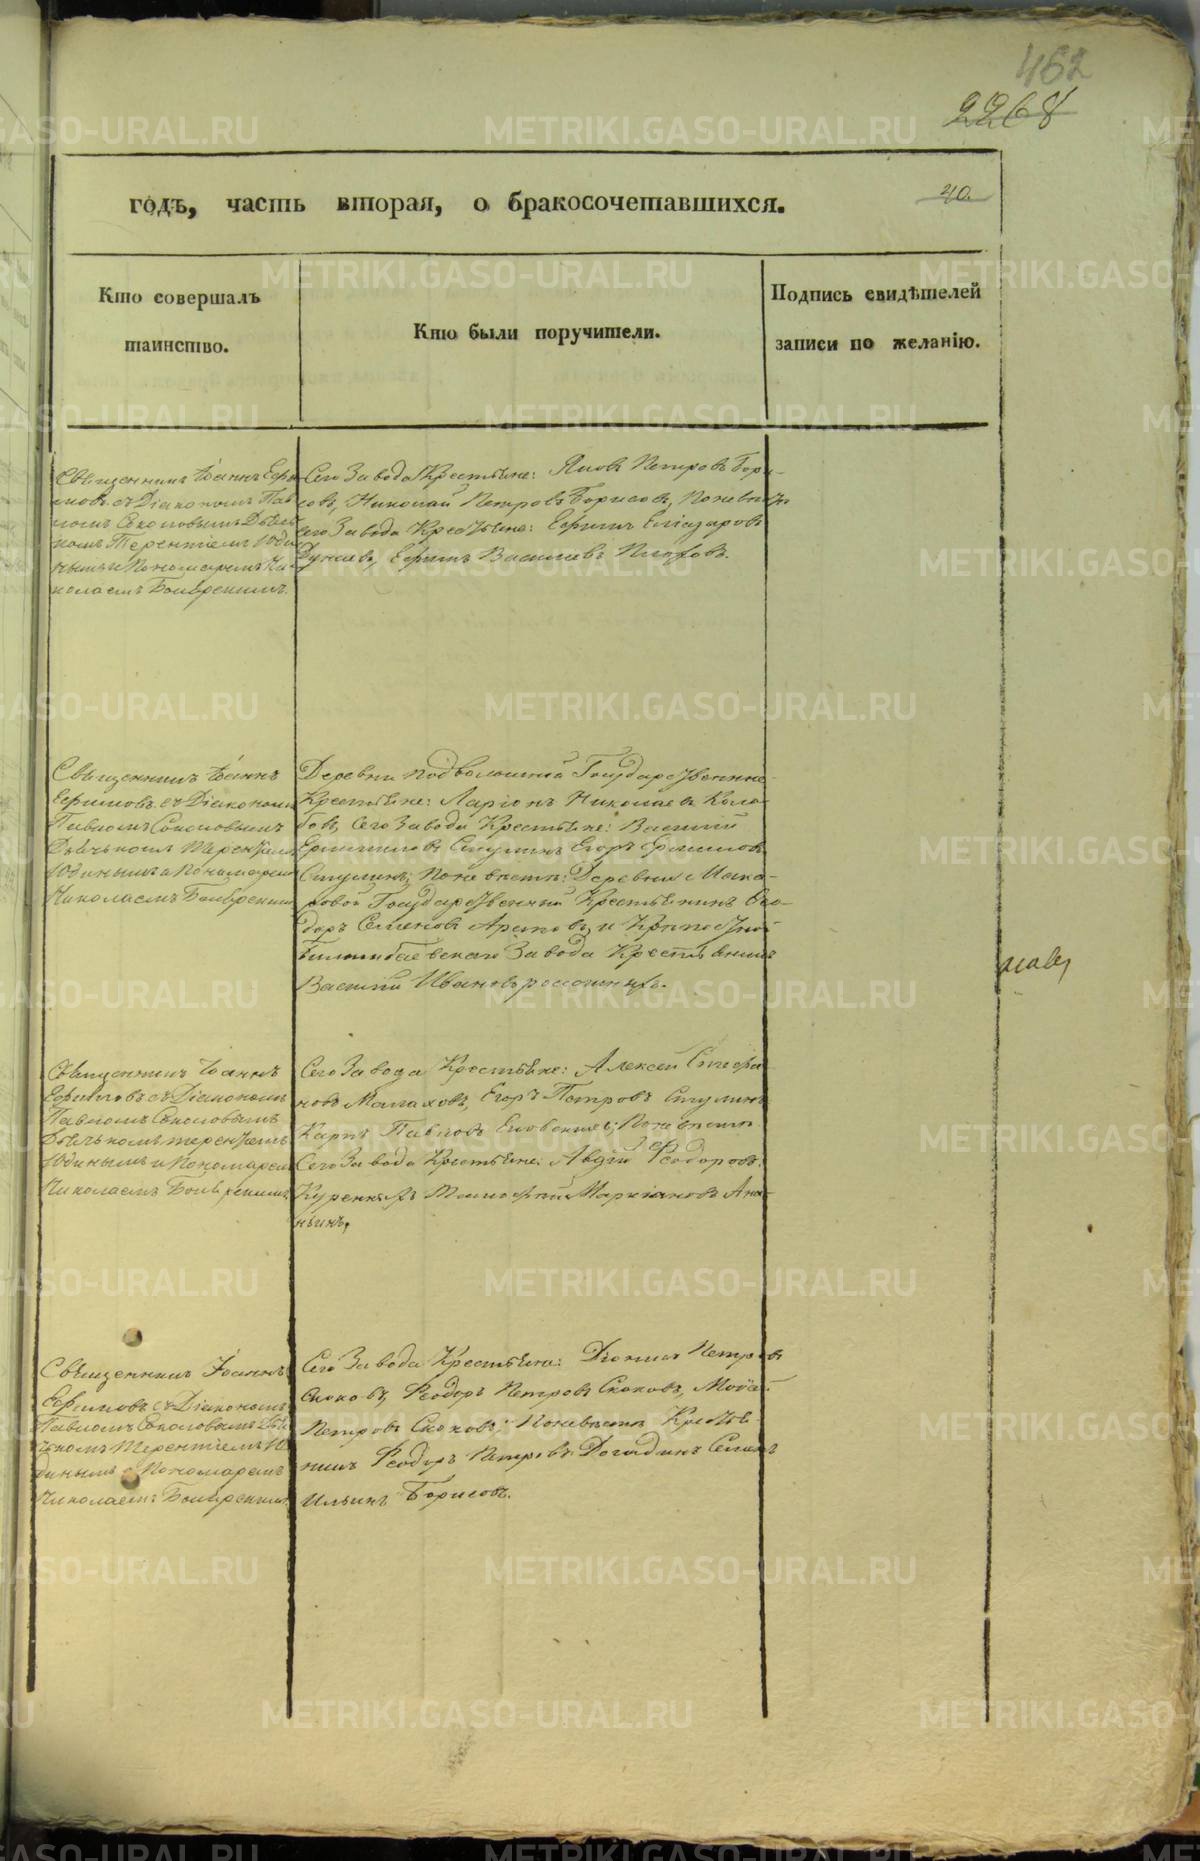 462
2268
годъ, часть вторая, о бракосочетавшихся.
40.
Кто совершалъ
таинство.
Кто были поручители.
Подпись свидѣтелей
записи по желанію.
Священникъ Іоаннъ Ефи-
мовъ съ Діакономъ Пав-
ломъ Соколовымъ Дьяч-
комъ Терентіемъ Юди-
нымъ и Пономаремъ Ни-
колаемъ
Сего Завода Крестьяне: Яковъ Петровъ Бори-
совъ, Николай Петровъ Борисовъ, Поневѣстѣ
сего Завода Крестьяне: Ефимъ Еліазаровъ
Ефимъ Василіевъ
Священникъ Іоаннъ
Ефимовъ съ Діакономъ
Павломъ Соколовымъ
Дьячькомъ Терентіемъ
Юдинымъ и Пономаремъ
Николаемъ
Деревни Подволошной Государственные
Крестьяне: Ларіонъ Николаевъ Коло-
бовъ, сего Завода Крестьяне: Василій
Стулинъ Егоръ
Стулинъ; Поневѣстѣ: Деревни Мака-
ровой Государственный Крестьянинъ Ѳео-
доръ Семеновъ и Крѣпостной
Билимбаевскаго Завода Крестьянинъ
Василій Ивановъ
Священникъ Іоаннъ
Ефимовъ съ Діакономъ
Павломъ Соколовымъ
Дьячькомъ Терентіемъ
Юдинымъ и Пономаремъ
Николаемъ
Сего Завода Крестьяне: Алексей Стефа-
новъ Малаховъ, Егоръ Петровъ Стулинъ
Карпъ Павловъ Поневѣстѣ
Сего Завода Крестьяне: Авдій Ѳеодоровъ
Маркіановъ Ана-
ньинъ,
Священникъ Іоаннъ
Ефимовъ съ Діакономъ
Павломъ Соколовымъ Дья-
чькомъ Терентіемъ Ю-
динымъ и Пономаремъ
Николаемъ
Сего Завода Крестьяне: Діонисій Петровъ
Скоковъ, Ѳеодоръ Петровъ Скоковъ, Моисей
Петровъ Скоковъ, Поневѣстѣ Крестья-
нинъ Ѳеодоръ Петровъ Догадинъ Семенъ
Ильинъ Борисовъ.
METRIKI.GASO-URAL.RU